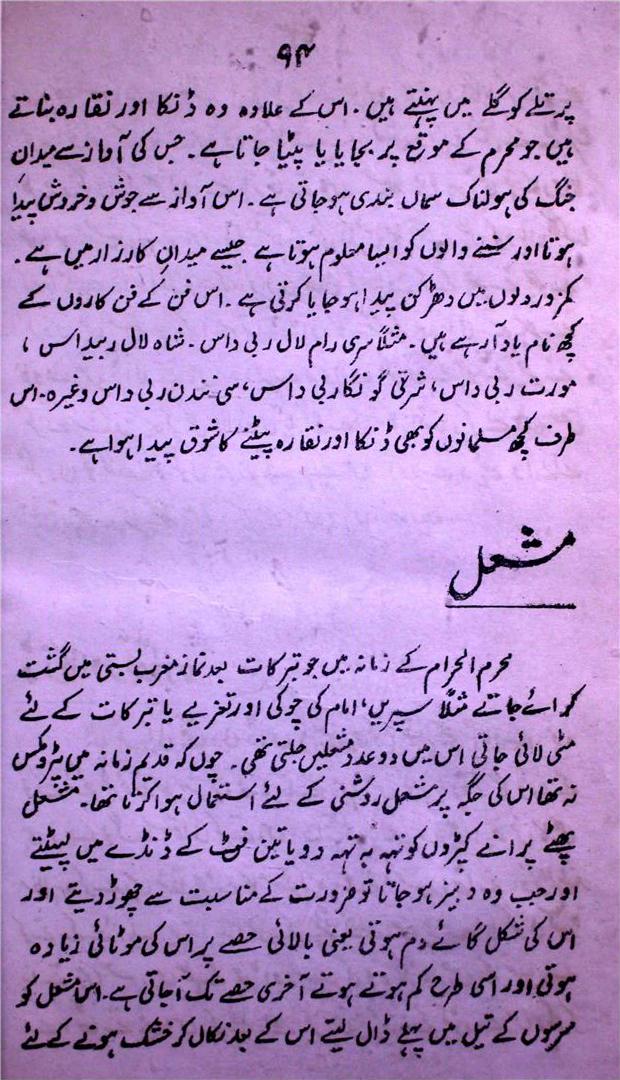 ۹۴
پر تلے کو گلے میں پہنتے ہیں۔ اس کے علاوہ وہ ڈنکا اور نقارہ بناتے
ہیں جو محرم کے موقع پر بجایا یا پیٹا جاتا ہے۔ جس کی آواز سے میدانِ
جنگ کی ہولناک سماں بندی ہو جاتی ہے۔ اس آواز سے جوش و خروش پیدا
ہوتا اور سننے والوں کو ایسا معلوم ہوتا ہے جیسے میدانِ کارزار میں ہے۔
کمزور دلوں میں دھڑکن پیدا ہو جایا کرتی ہے۔ اس فن کے فن کاروں کے
کچھ نام یاد آرہے ہیں۔ مثلاً سری رام لال ربی داس۔ شاہ لال ربیداس،
مورت ربی داس، ثمرتی گونگا ربی داس، سی نندن ربی داس وغیرہ۔ اس
طرف کچھ مسلمانوں کو بھی ڈنکا اور نقارہ پیٹنے کا شوق پیدا ہوا ہے۔
مشعل
محرم الحرام کے زمانہ میں جو تبرکات بعد نماز مغرب بستی میں گشت
کرائے جاتے مثلاً سپریں، امام کی چوکی اور تعزیے یا تبرکات کے لئے
مٹی لائی جاتی اس میں دو عدد مشعلیں جلتی تھی۔ چوں کہ قدیم زمانہ میں پٹرومکس
نہ تھا اس کی جگہ پر مشعل روشنی کے لئے استعمال ہوا کرتا تھا۔ مشعل
پھٹے پرانے کپڑوں کو تہہ بہ تہہ دو یا تین فوٹ کے ڈنڈے میں لپیٹتے
اور جب وہ دبیز ہو جاتا تو ضرورت کے مناسبت سے چھوڑ دیتے اور
اس کی شکل گائے دم ہوتی یعنی بالائی حصے پر اس کی موٹائی زیادہ
ہوتی اور اسی طرح کم ہوتے ہوتے آخری حصے تک آجاتی ہے۔ اس مشعل کو
سرسوں کے تیل میں پہلے ڈال لیتے اس کے بعد نکال کر خشک ہونے کے لئے